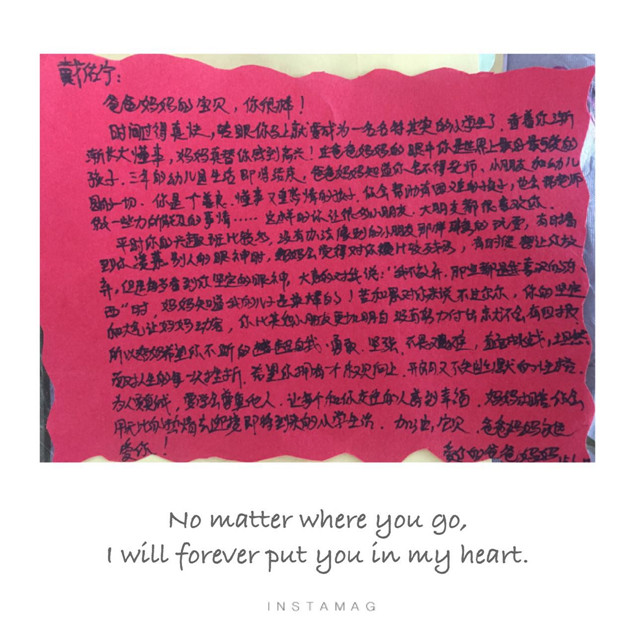 戴佑宁：
爸爸妈妈的宝贝，你很棒！
时间过得真快，转眼你马上就要成为一名名符其实的小学生了，看着你渐
渐长大懂事，妈妈真替你感到高兴！在爸爸妈妈的眼中你是世界上最好最可爱的
孩子，三年的幼儿园生活即将结束，爸爸妈妈知道你舍不得老师、小朋友和幼儿
园的一切，你是个善良、懂事又重感情的孩子，你会帮助有困难的孩子，也会帮老师
做一些力所能及的事情……这样的你让很多小朋友、大朋友都很喜欢你。
平时你的兴趣班比较多，没有办法像别的小朋友那样的玩耍，有时看
到你羡慕别人的眼神时，妈妈会觉得对你是比较残忍，有时很想让你放
弃，但是每当看到你坚定的眼神，大声的对我说："我不放弃，那些都是我喜欢的东
西"时，妈妈知道我的儿子是最棒的！苦和累对你来说不过尔尔，你的坚定
和大气让妈妈动容，你比其他小朋友更加明白没有努力付出就不会有回报
所以妈妈希望你不断的超越自我，勇敢、坚强、不畏艰难，直面挑战，坦然
面对人生的每一次挫折，希望你拥有一个积极向上、开朗又不失幽默的小性格，
为人真诚，要学会尊重他人，让每个和你交往的人感到幸福，妈妈相信你会
用的热情去迎接即将到来的小学生活，加油，宝贝，爸爸妈妈永远
爱你！
爱你的爸爸妈妈
No matter where you go,
I will forever put you in my heart.
INSTAMAG